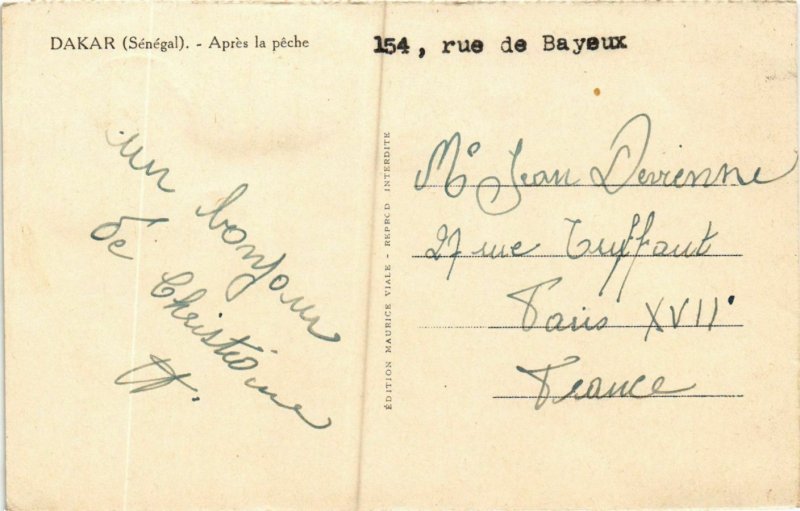 DAKAR (Sénégal). - Après la pêche
154, rue de Bayeux
un bonjour
de
Christiane
ÉDITION MAURICE VIALE - REPROD INTERDITE
Mr Jean Devienne
27 rue Truffaut
Paris XVII°
France